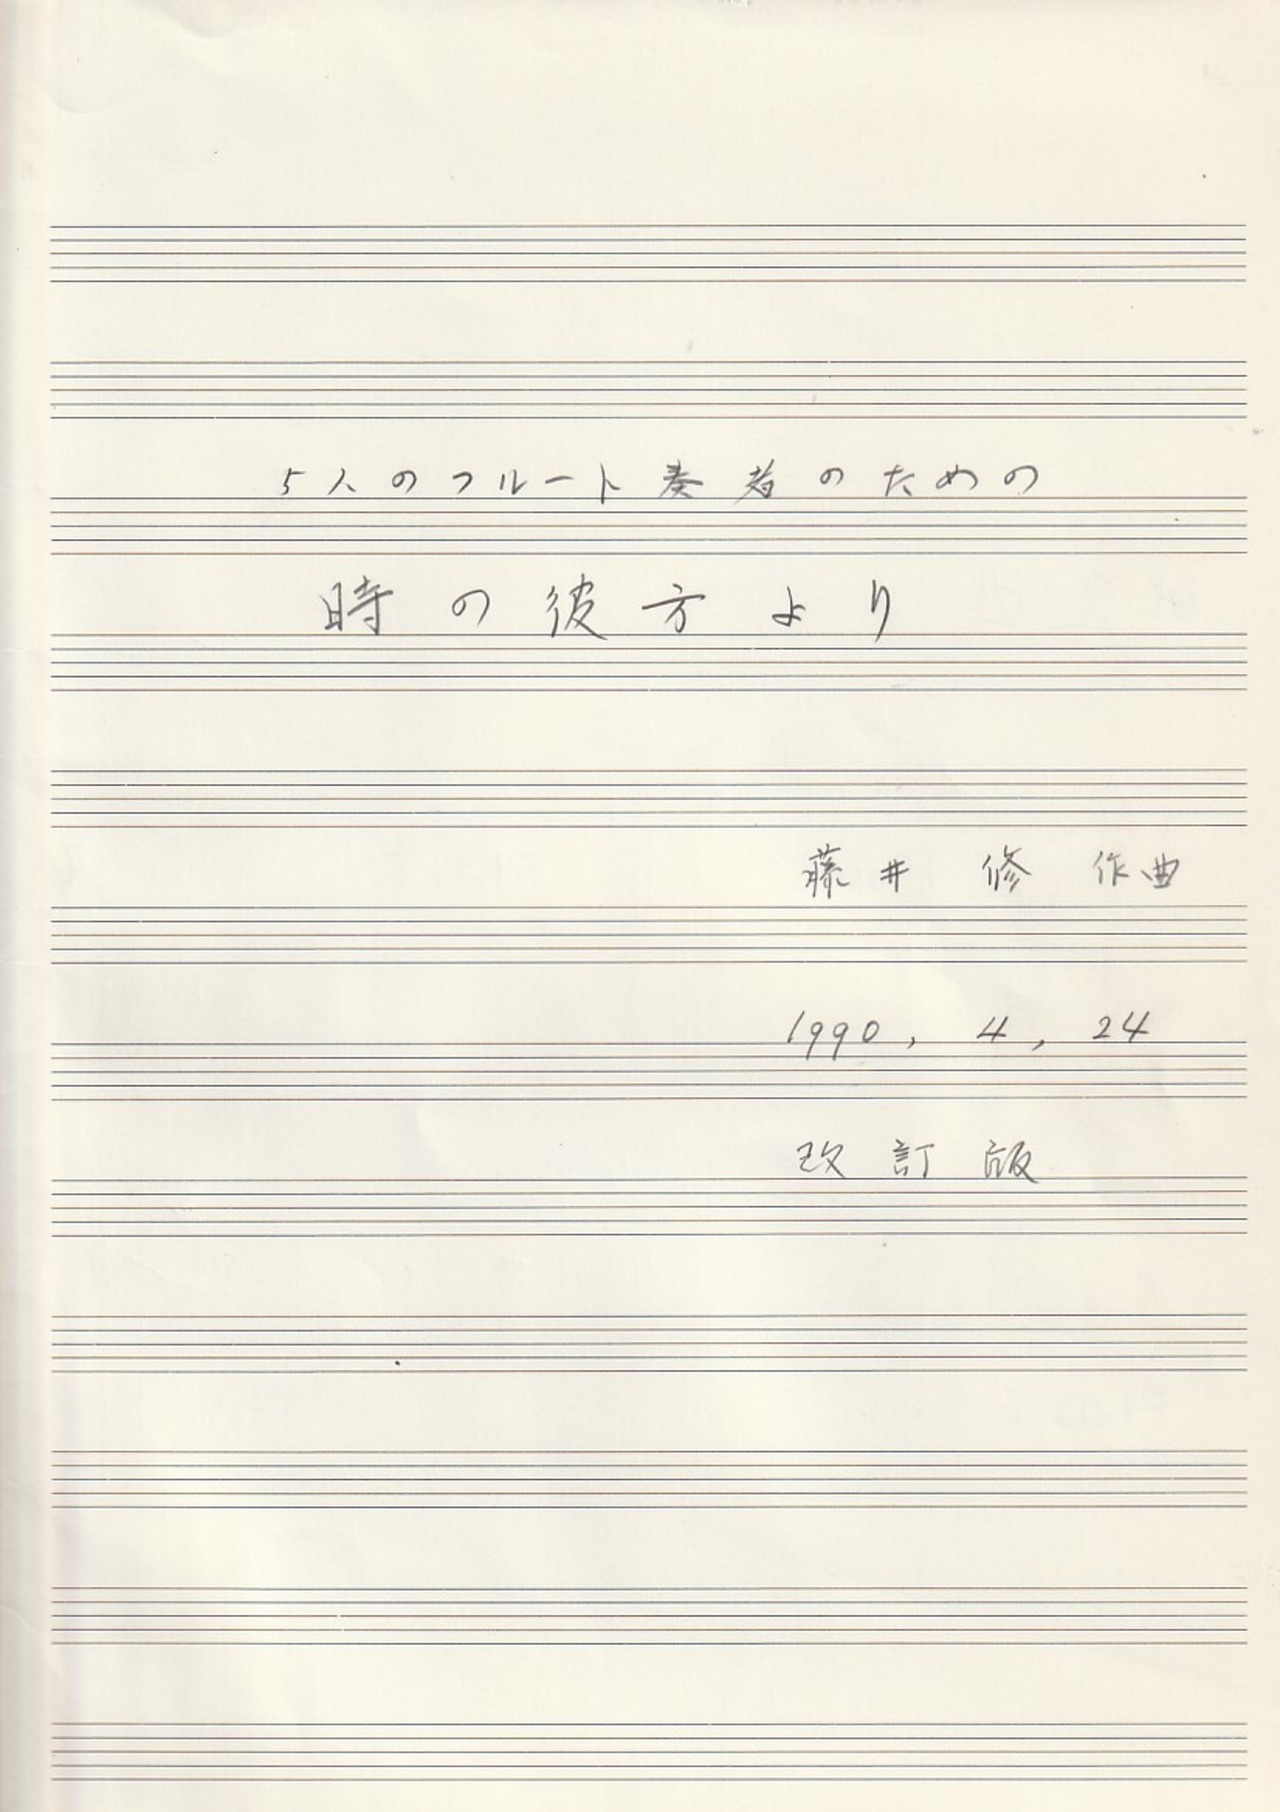 5人のフルート奏者のための
時の彼方より
藤井 修 作曲
1990, 4, 24
改訂版